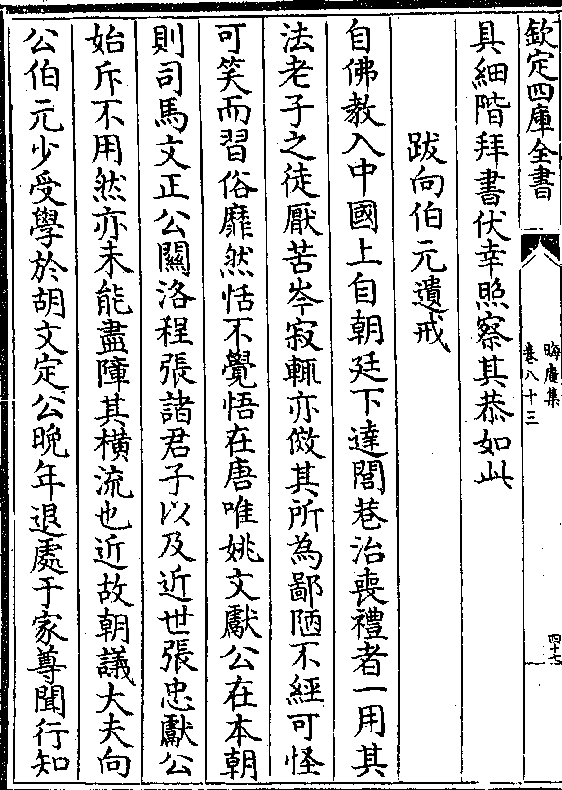 欽定四庫全書
晦庵集
卷八十三
四十七
具細階拜書伏幸照察其恭如此
跋向伯元遺戒
自佛教入中國上自朝廷下達閭巷治喪禮者一用其
法老子之徒厭苦岑寂輒亦倣其所為鄙陋不經可怪
可笑而習俗靡然恬不覺悟在唐唯姚文獻公在本朝
則司馬文正公關洛程張諸君子以及近世張忠獻公
始斥不用然亦未能盡障其橫流也近故朝議大夫向
公伯元少受學於胡文定公晚年退處于家尊聞行知